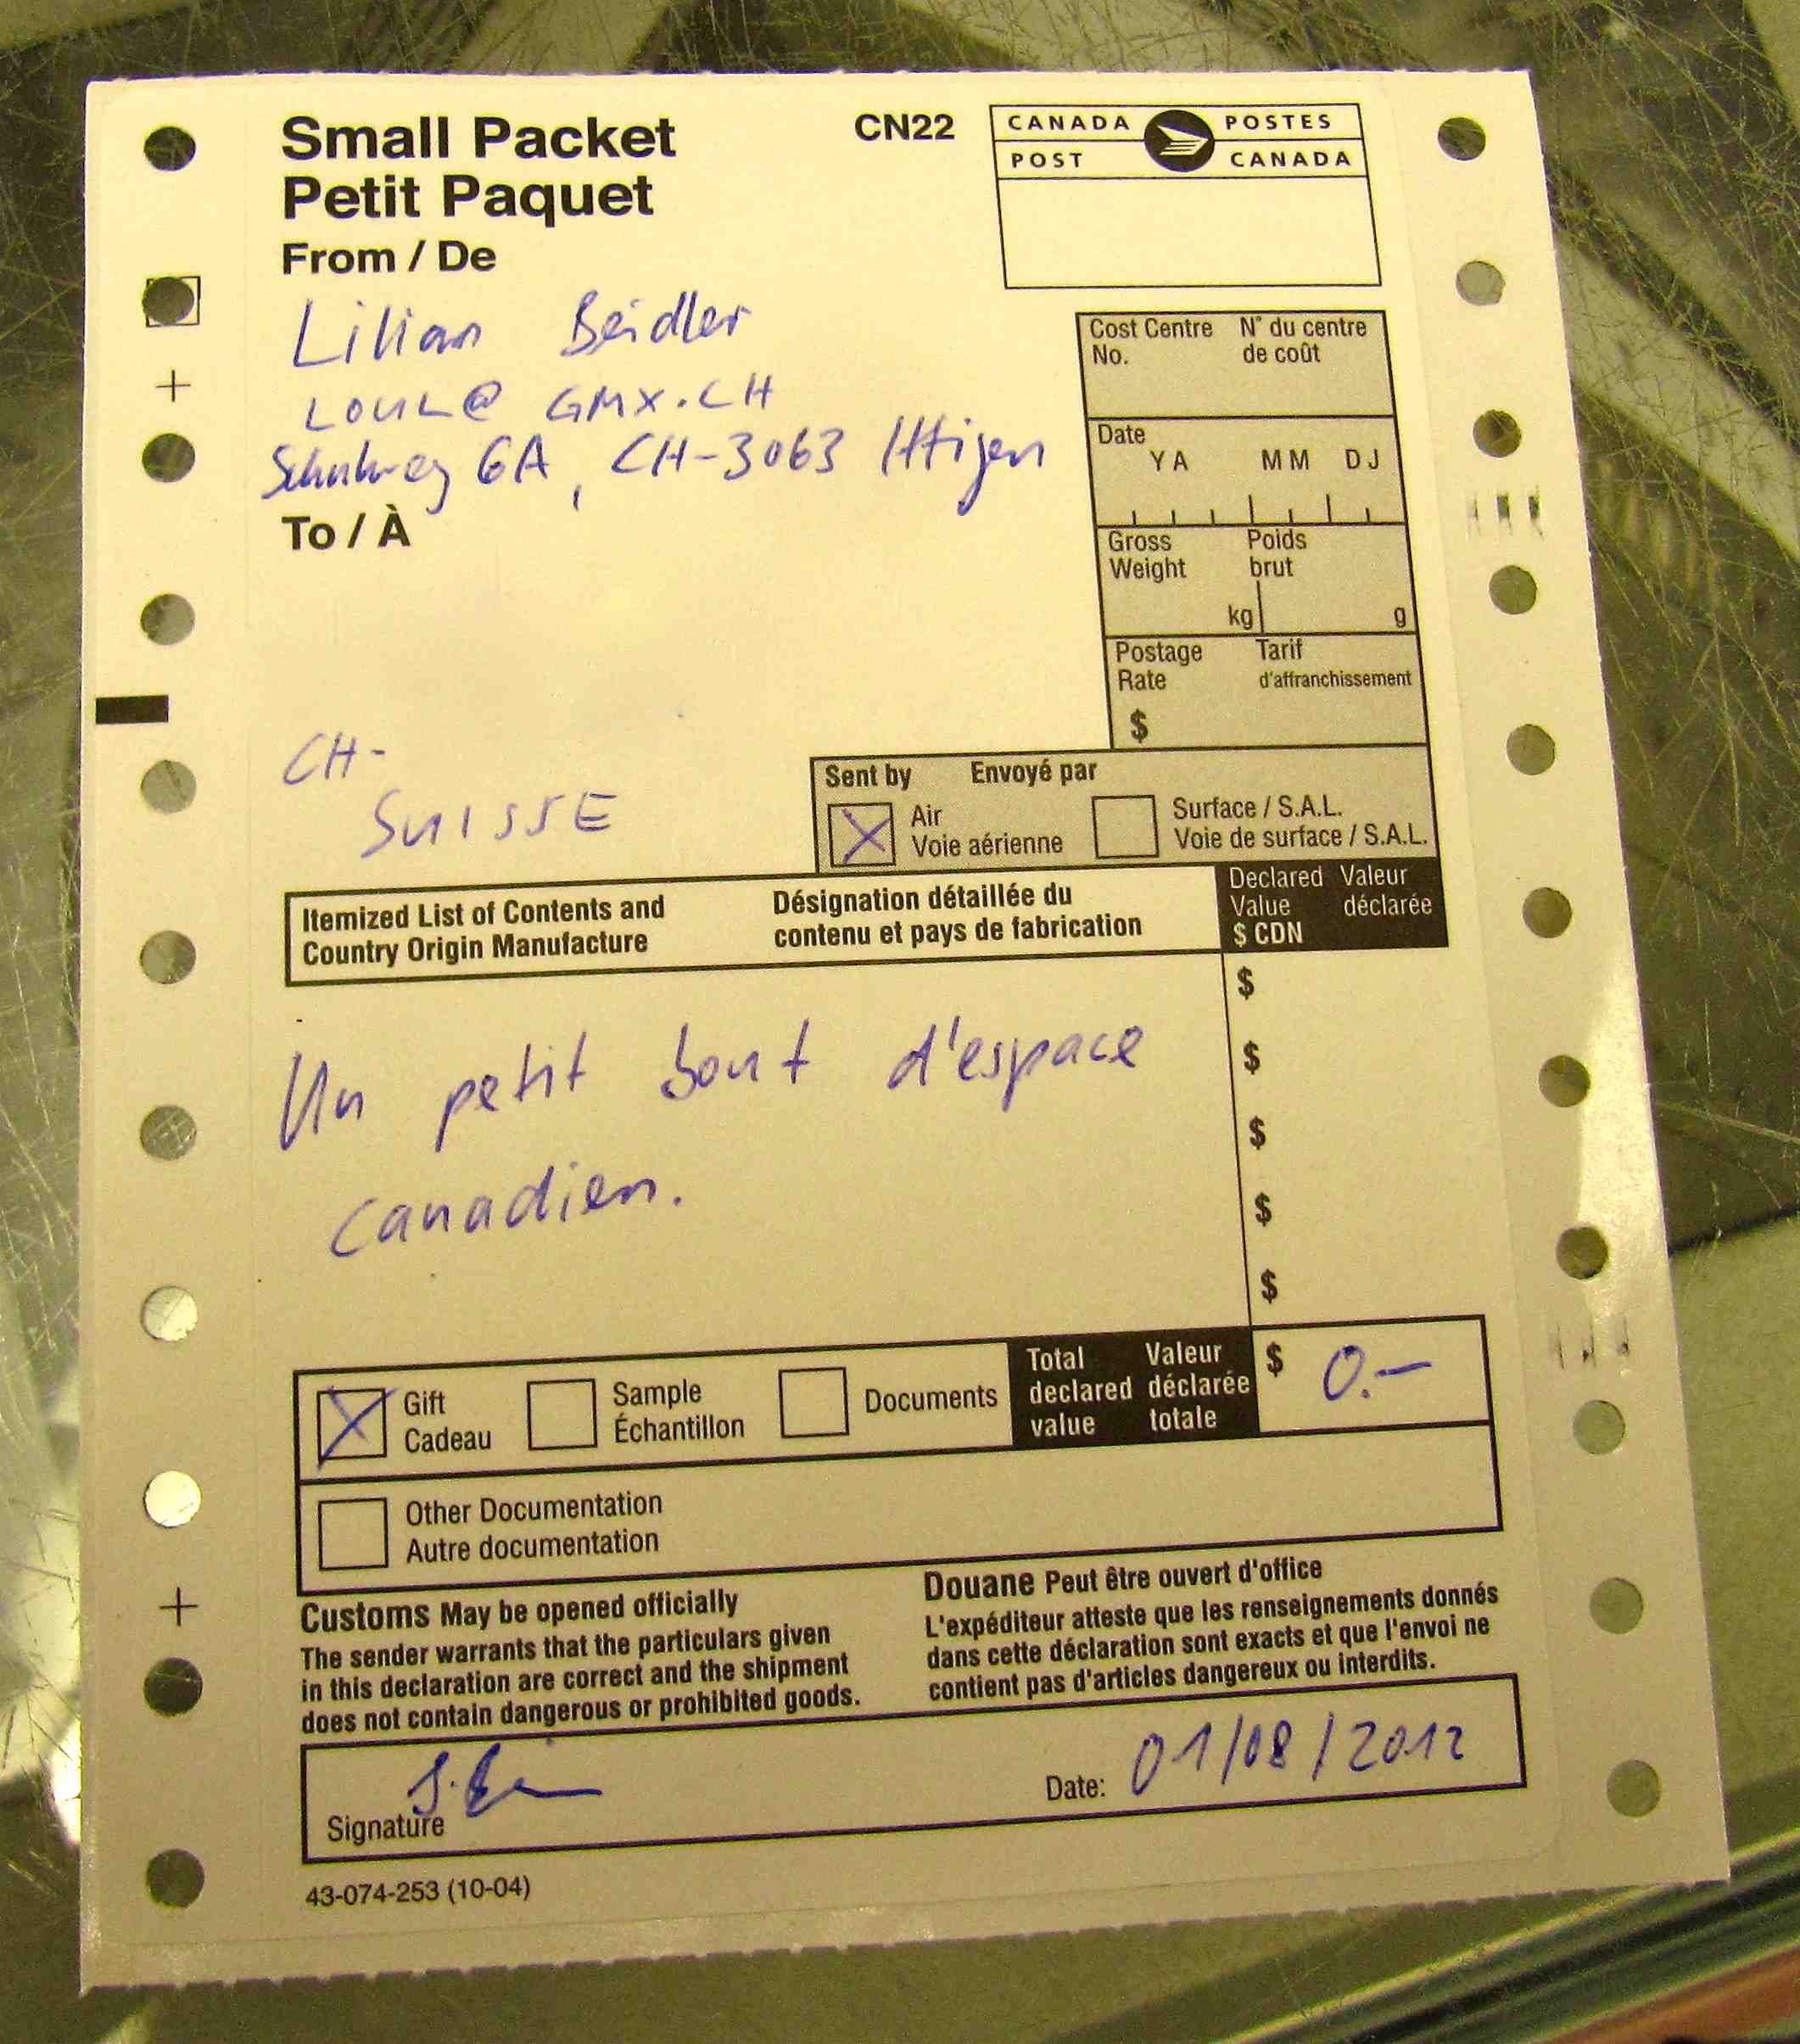 Small Packet
Petit Paquet
CN22
CANADA POSTES
POST CANADA
From / De
Lilian Beidler
LOUL@GMX.CH
6A, CH-3063 Ittigen
To / À
CH-
SUISSE
Cost Centre N° du centre
No. de coût
Date
Y A M M D J
Gross Poids
Weight brut
kg g
Postage Tarif
Rate d'affranchissement
$
Sent by Envoyé par
Air
Voie aérienne
Surface / S.A.L.
Voie de surface / S.A.L.
Itemized List of Contents and
Country Origin Manufacture
Désignation détaillée du
contenu et pays de fabrication
Declared Valeur
Value déclarée
$ CDN
$
$
$
$
$
Un petit bout d'espace
canadien.
Gift
Cadeau
Sample
Échantillon
Documents
Total Valeur
declared déclarée
value totale
$ 0.–
Other Documentation
Autre documentation
Customs May be opened officially
The sender warrants that the particulars given
in this declaration are correct and the shipment
does not contain dangerous or prohibited goods.
Douane Peut être ouvert d'office
L'expéditeur atteste que les renseignements donnés
dans cette déclaration sont exacts et que l'envoi ne
contient pas d'articles dangereux ou interdits.
Signature
Date: 01/08/2012
43-074-253 (10-04)